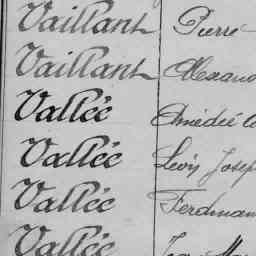 Vaillant Pierre
Vaillant
Vallée Amédée
Vallée Léon Josep
Vallée Ferdinan
Vallée